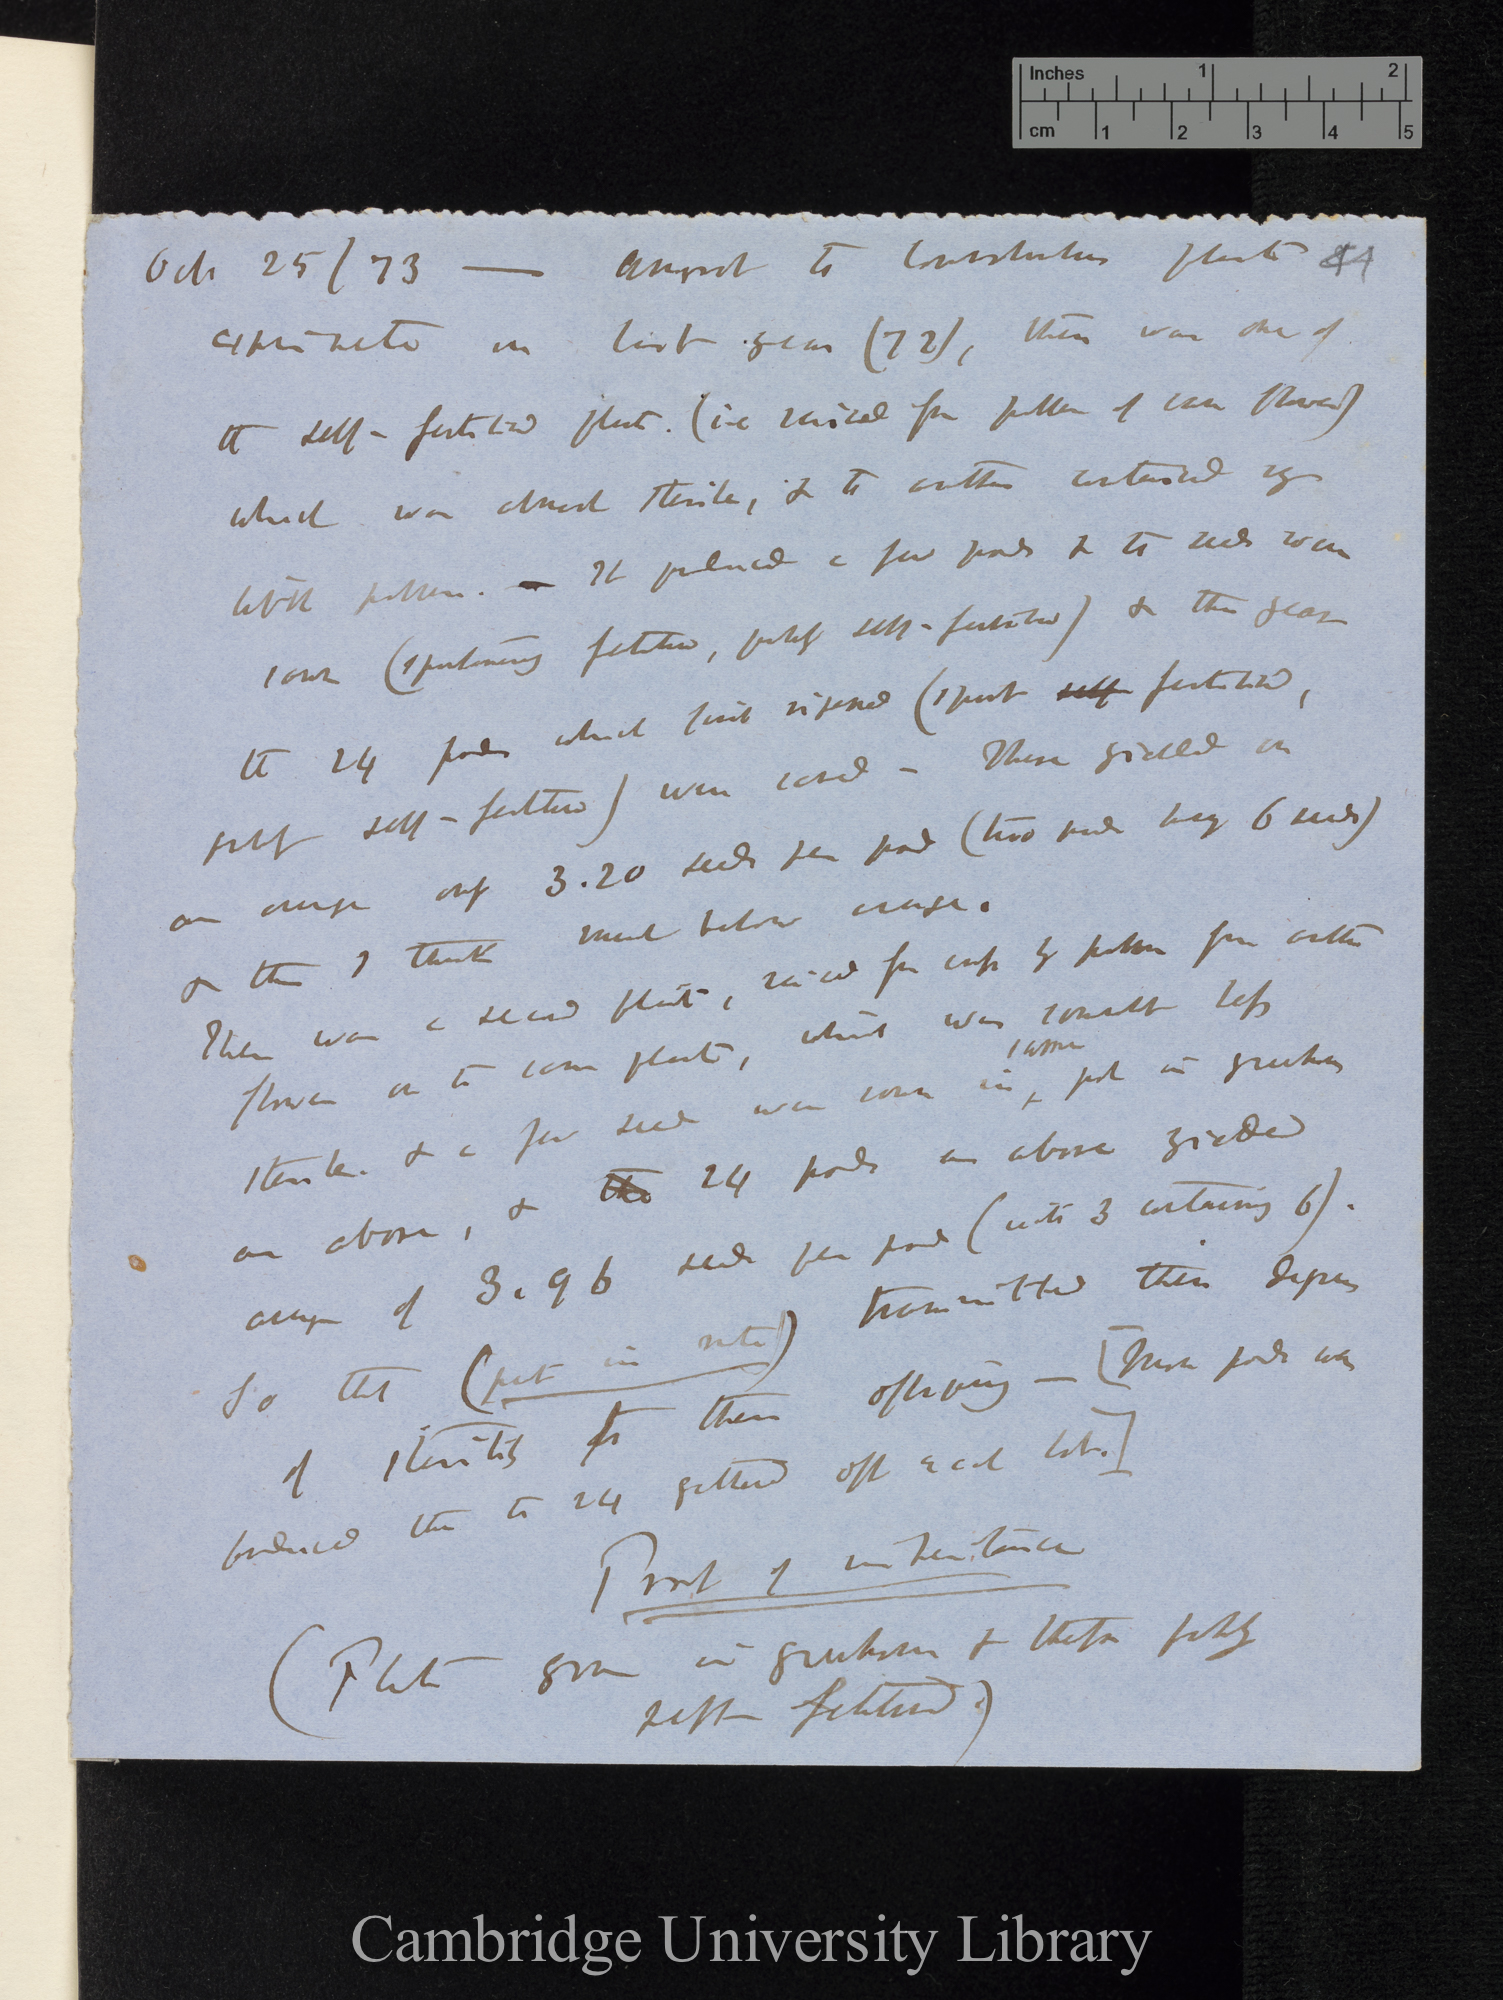 Inches 1 2
cm 1 2 3 4 5
Oct 25/73 — Amongst the Convolvulus plants 41
experimented on last year (72), there was one of
the self-fertilised plants (i.e. raised from pollen of same flower)
which was almost sterile, & the anthers contained very
little pollen. — It produced a few pods & the seeds were
sown (spontaneously fertilised, probably self-fertilised) & this year
the 24 pods which first ripened (spont self fertilised,
probably self-fertilised) were saved — These yielded on
an average only 3.20 seeds per pod (two pods having 6 seeds)
& this I think much below average.
There was a second plant, raised from by pollen from other
flower on the same plant, which was somewhat less
sterile. & a few seeds were sown in same pot in greenhouse
as above, & the 24 pods as above yielded
average of 3.96 seeds per pod (with 3 containing 6).
So that (put in note) transmitted their degrees
of sterility to their offspring — [More pods were
produced than the 24 gathered off each lot.]
Proof of inheritance
(Plants grown in greenhouse & therefore probably
self fertilised.)
Cambridge University Library